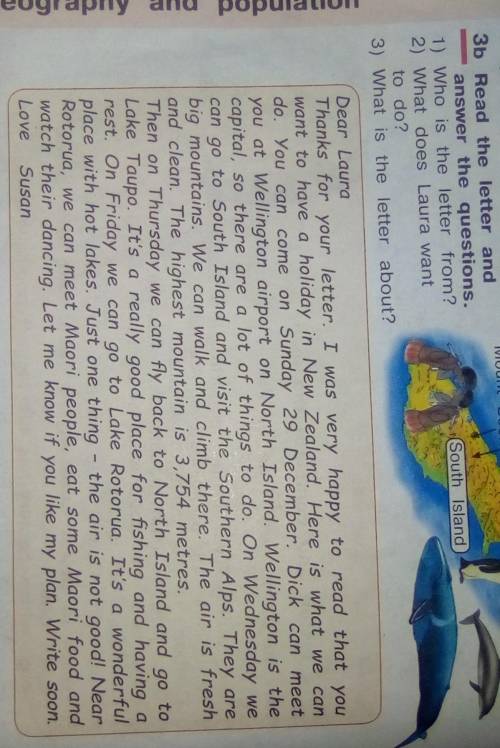 eography and population
3b Read the letter and
answer the questions.
1) Who is the letter from?
2) What does Laura want
to do?
3) What is the letter about?
South Island
Dear Laura
Thanks for your letter. I was very happy to read that you
want to have a holiday in New Zealand. Here is what we can
do. You can come on Sunday 29 December. Dick can meet
you at Wellington airport on North Island. Wellington is the
capital, so there are a lot of things to do. On Wednesday we
can go to South Island and visit the Southern Alps. They are
big mountains. We can walk and climb there. The air is fresh
and clean. The highest mountain is 3,754 metres.
Then on Thursday we can fly back to North Island and go to
Lake Taupo. It's a really good place for fishing and having a
rest. On Friday we can go to Lake Rotorua. It's a wonderful
place with hot lakes. Just one thing - the air is not good! Near
Rotorua, we can meet Maori people, eat some Maori food and
watch their dancing. Let me know if you like my plan. Write soon.
Love Susan